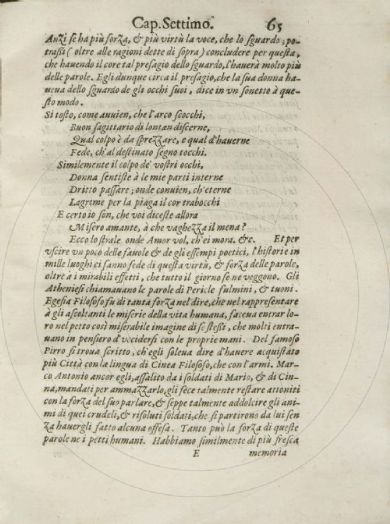 Cap. Settimo. 65
Anzi se ha più forza, & più virtù la voce, che lo sguardo; po-
trassi (oltre alle ragioni dette di sopra) concludere per questa,
che hauendo il core tal presagio dello sguardo, l'hauerà molto più
delle parole. Egli dunque circa il presagio, che la sua donna ha-
ueua dello sguardo de gli occhi suoi, dice in vn sonetto à que-
sto modo.
Si tosto, come auuien, che l'arco scocchi,
Buon sagittario di lontan discerne,
Qual colpo è da sprezzare, e qual d'hauerne
Fede, ch'al destinato segno tocchi.
Similemente il colpo de' vostri occhi,
Donna sentiste à le mie parti interne
Dritto passare; onde conuien, ch'eterne
Lagrime per la piaga il cor trabocchi
E certo io son, che voi diceste allora
Misero amante, à che vaghezza il mena?
Ecco lo strale, onde Amor vol, ch'ei mora, &c. Et per
vscire vn poco delle fauole & de gli essempi poetici, l'historie in
mille luoghi ci fanno fede di questa virtù, & forza delle parole,
oltre à i mirabili effetti, che tutto il giorno se ne veggono. Gli
Atheniesi chiamauano le parole di Pericle fulmini, & tuoni.
Egesia Filosofo fù di tanta forza nel dire, che nel rappresentare
à gli ascoltanti le miserie della vita humana, faceua entrar lo-
ro nel petto così miserabile imagine di se stessi, che molti entra-
uano in pensiero d'vccidersi con le proprie mani. Del famoso
Pirro si troua scritto, ch'egli soleua dire d'hauere acquistato
più Città con la lingua di Cinea Filosofo, che con l'armi. Mar-
co Antonio ancor egli, assalito da i soldati di Mario, & di Cin-
na, mandati per ammazzarlo, gli fece talmente restare attoniti
con la forza del suo parlare, & seppe talmente addolcire gli ani-
mi di quei crudeli, & risoluti soldati, che si partirono da lui sen
za hauergli fatto alcuna offesa. Tanto può la forza di queste
parole ne i petti humani. Habbiamo similmente di più fresca
E memoria